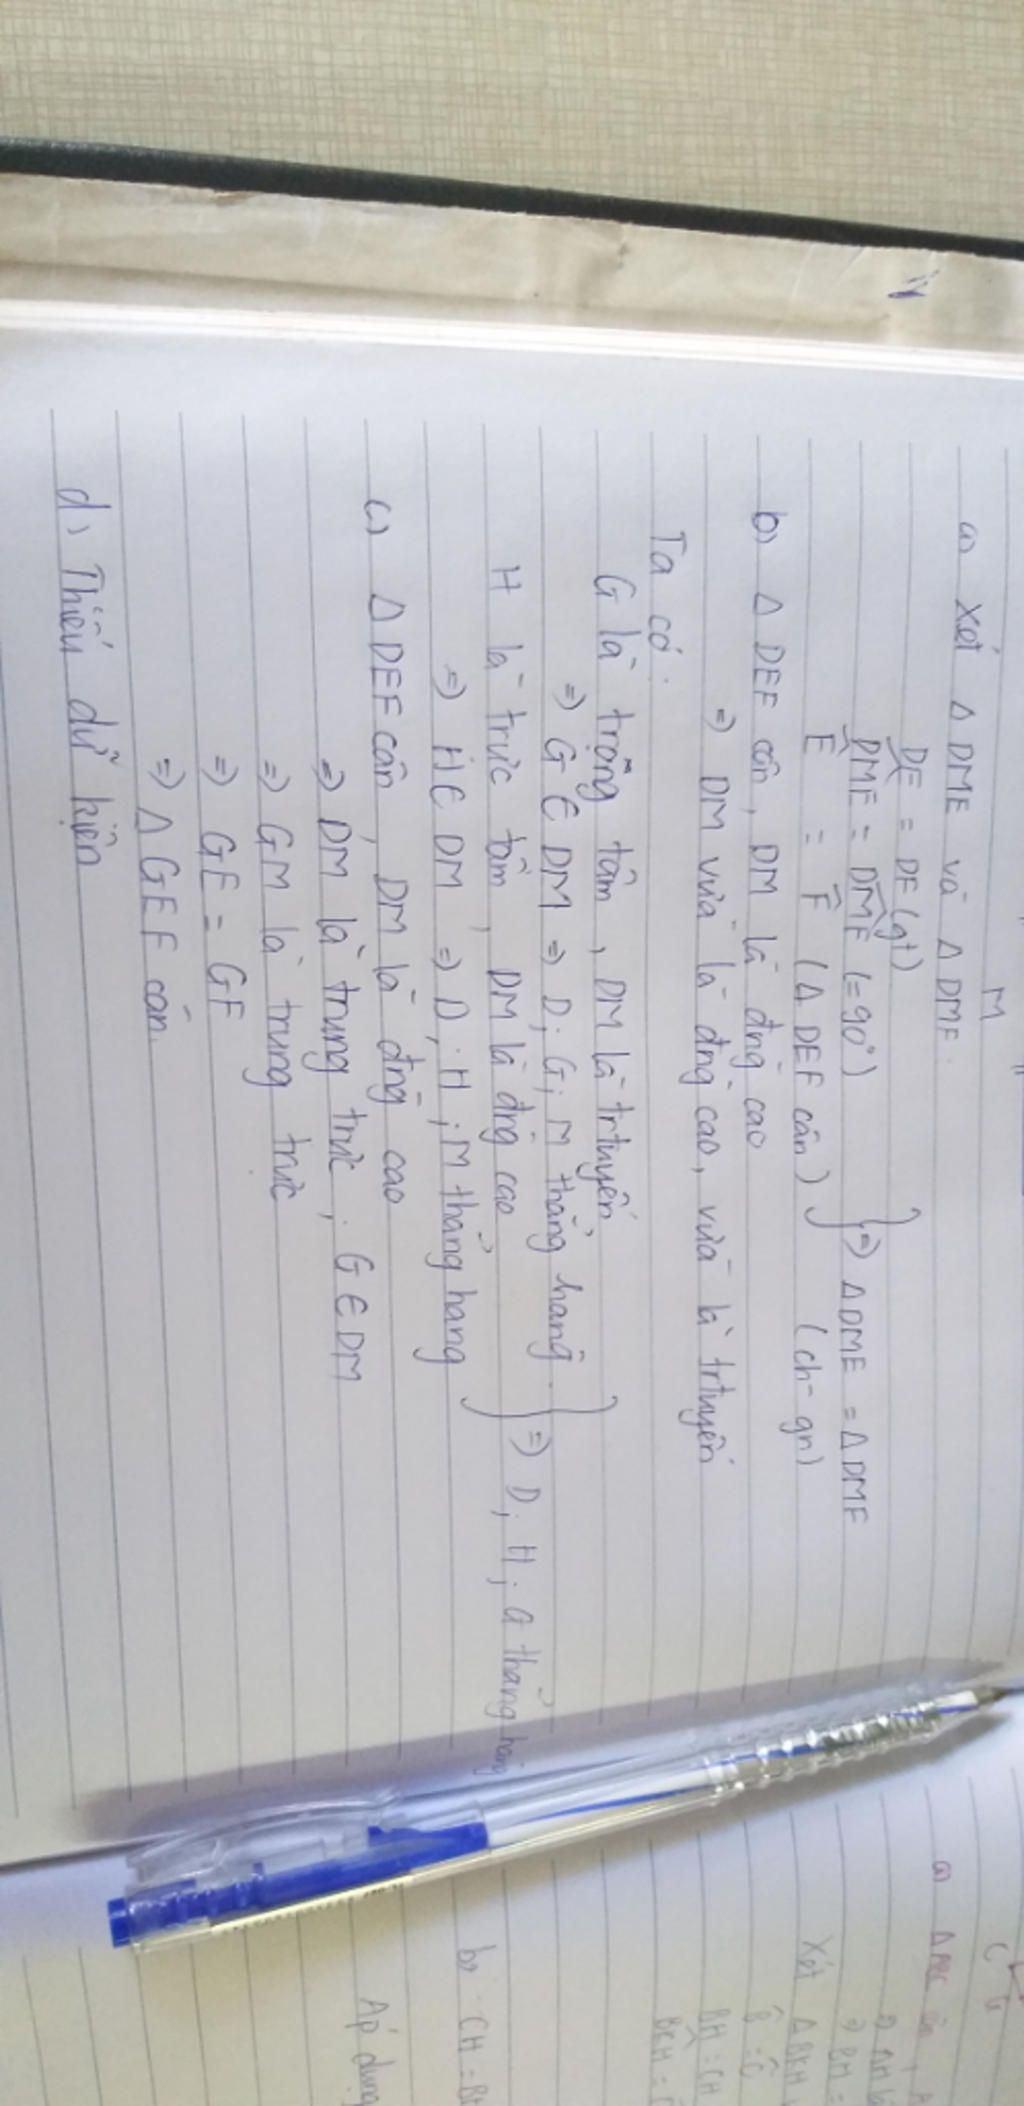 M
a) Xét Δ DME và Δ DMF.
DE = DF (gt)
DME = DMF (=90°)
Ê = F̂ (Δ DEF cân)
} => Δ DME = Δ DMF
(ch-gn)
b) Δ DEF cân, DM là đng cao
=> DM vừa là đng cao, vừa là trtuyến
Ta có:
G là trọng tâm, DM là trtuyến
=> G ∈ DM => D; G; M thẳng hàng.
H là trực tâm, DM là đng cao
=> H ∈ DM => D; H; M thẳng hàng
} => D; H; G thẳng hàng
c) Δ DEF cân, DM là đng cao
=> DM là trung trực; G ∈ DM
=> GM là trung trực
=> GE = GF
=> Δ GEF cân.
d) Thiếu dữ kiện
a) Δ ABC cân
Xét Δ BKH
B̂ = Ĉ
BH = CH
b) CH = BH
Áp dụng